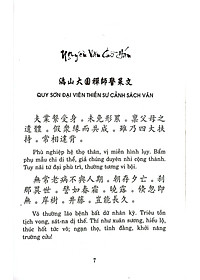 Nguyên Văn Chữ Hán
溈山大圓禪師警策文
QUY SƠN ĐẠI VIÊN THIỀN SƯ CẢNH SÁCH VĂN
夫業繫受身。未免形累。禀父母之
遺體。假衆緣而共成。雖乃四大扶
持。常相違背。
Phù nghiệp hệ thọ thân, vị miễn hình lụy. Bẩm
phụ mẫu chi di thể, giả chúng duyên nhi cộng thành.
Tuy nãi tứ đại phù trì, thường tương vi bội.
無常老病不與人期。朝存夕亡。刹
那異世。譬如春霜。曉露。倏忽即
無。岸樹。井藤。豈能長久。
Vô thường lão bệnh bất dữ nhân kỳ. Triêu tồn tịch
vong, sát-na dị thế. Thí như xuân sương, hiểu lộ,
thúc hốt tức vô; ngạn thọ, tỉnh đằng, khởi năng
trường cửu!
7